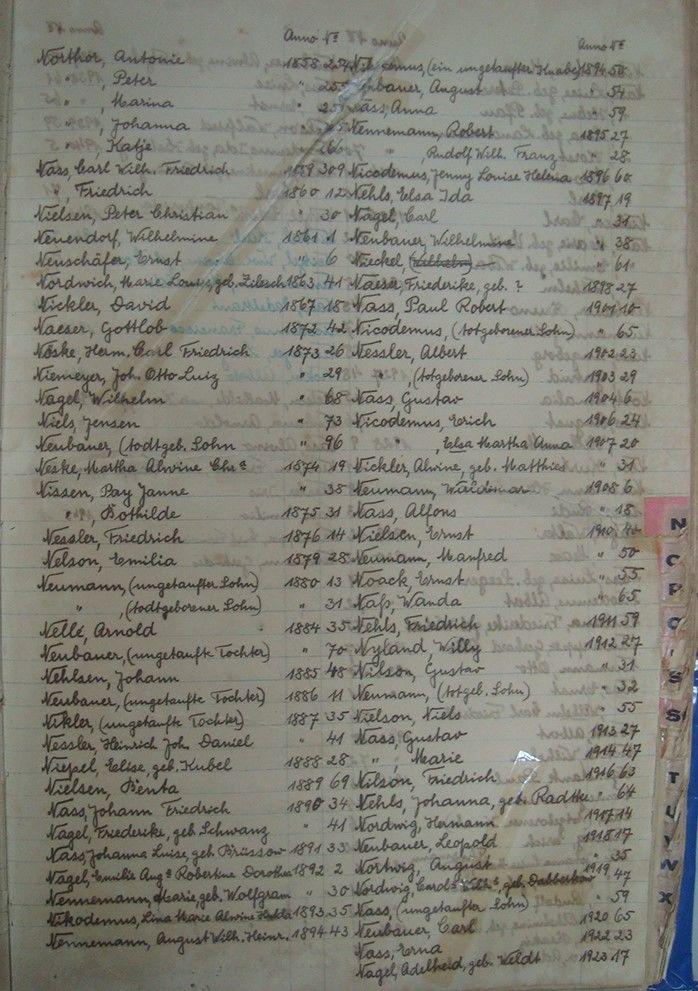 Anno No
Northor, Antonie 1858
" , Peter "
" , Marina "
" , Johanna
" , Katje
Nass, Carl Wilh. Friedrich 1859 309
" , Friedrich 1860 12
Nielsen, Peter Christian " 30
Neuendorf, Wilhelmine 1861 1
Neuschäfer, Ernst " 6
Nordwich, Marie Louise, geb. Zilesch 1863 41
Nickler, David 1867 18
Naeser, Gottlob 1872 42
Noske, Herm. Carl Friedrich 1873 26
Niemeyer, Joh. Otto Luiz " 29
Nagel, Wilhelm " 68
Niels, Jensen " 73
Neubauer, (todtgeb. Sohn " 96
Neske, Martha Alwine Chr. 1874 19
Nissen, Pay Janne " 38
" , Bothilde 1875 31
Nessler, Friedrich 1876 14
Nelson, Emilia 1879 28
Neumann, (ungetaufter Sohn) 1880 13
" , (todtgeborener Sohn) " 31
Nelle, Arnold 1884 35
Neubauer, (ungetaufte Tochter) " 70
Nehlsen, Johann 1885 48
Neubauer, (ungetaufte Tochter) 1886 11
Nikler, (ungetaufte Tochter) 1887 35
Nessler, Heinrich Joh. Daniel " 41
Niepel, Elise, geb. Kubel 1888 28
Nielsen, Benta 1889 69
Nass, Johann Friedrich 1890 34
Nagel, Friederike, geb Schwanz " 41
Nass, Johanna Luise, geb Brüssow 1891 33
Nagel, Emilie Aug. Robertine Dorothea 1892 2
Nennemann, Marie, geb. Wolfgram " 30
Nikodemus, Lina Marie Alwine 1893 35
Nennemann, August Wilh. Heinr. 1894 43
Anno No
(ein ungetaufter Knabe) 1894 50
August " 54
Nass, Anna " 59
Nennemann, Robert 1895 27
" Rudolf Wilh. Franz " 28
Nicodemus, Jenny Louise Helena 1896 60
Nehls, Elsa Ida 1897 19
Nagel, Carl " 31
Neubauer, Wilhelmine " 38
Nieckel, (Wilhelm) " 61
Naeser, Friederike, geb. ? 1898 27
Nass, Paul Robert 1901 10
Nicodemus, (totgeborener Sohn) " 65
Nessler, Albert 1902 23
" , (totgeborener Sohn) 1903 29
Nass, Gustav 1904 6
Nicodemus, Erich 1906 24
" , Elsa Martha Anna 1907 20
Nickler, Alwine, geb. Matthies " 31
Neumann, Waldemar 1908 6
Nass, Alfons " 18
Nielsen, Ernst 1910 40
Neumann, Manfred " 50
Noack, Ernst " 55
Naß, Wanda " 65
Nehls, Friedrich 1911 59
Nyland, Willy 1912 27
Nilson, Gustav " 31
Neumann, (totgeb. Sohn) " 32
Nielson, Niels " 55
Nass, Gustav 1913 27
" , Marie 1914 47
Nilson, Friedrich 1916 63
Nehls, Johanna, geb. Radtke " 64
Nordwig, Hermann 1917 14
Neubauer, Leopold 1918 17
Nortwig, August " 35
Nordwig, geb. Dabberkow 1919 47
Nass, (ungetaufter Sohn) " 59
Neubauer, Carl 1920 65
Nass, Erna 1922 23
Nagel, Adelheid, geb. Weldt 1923 17
N
O
P
Q
S
S
T
U
W
X